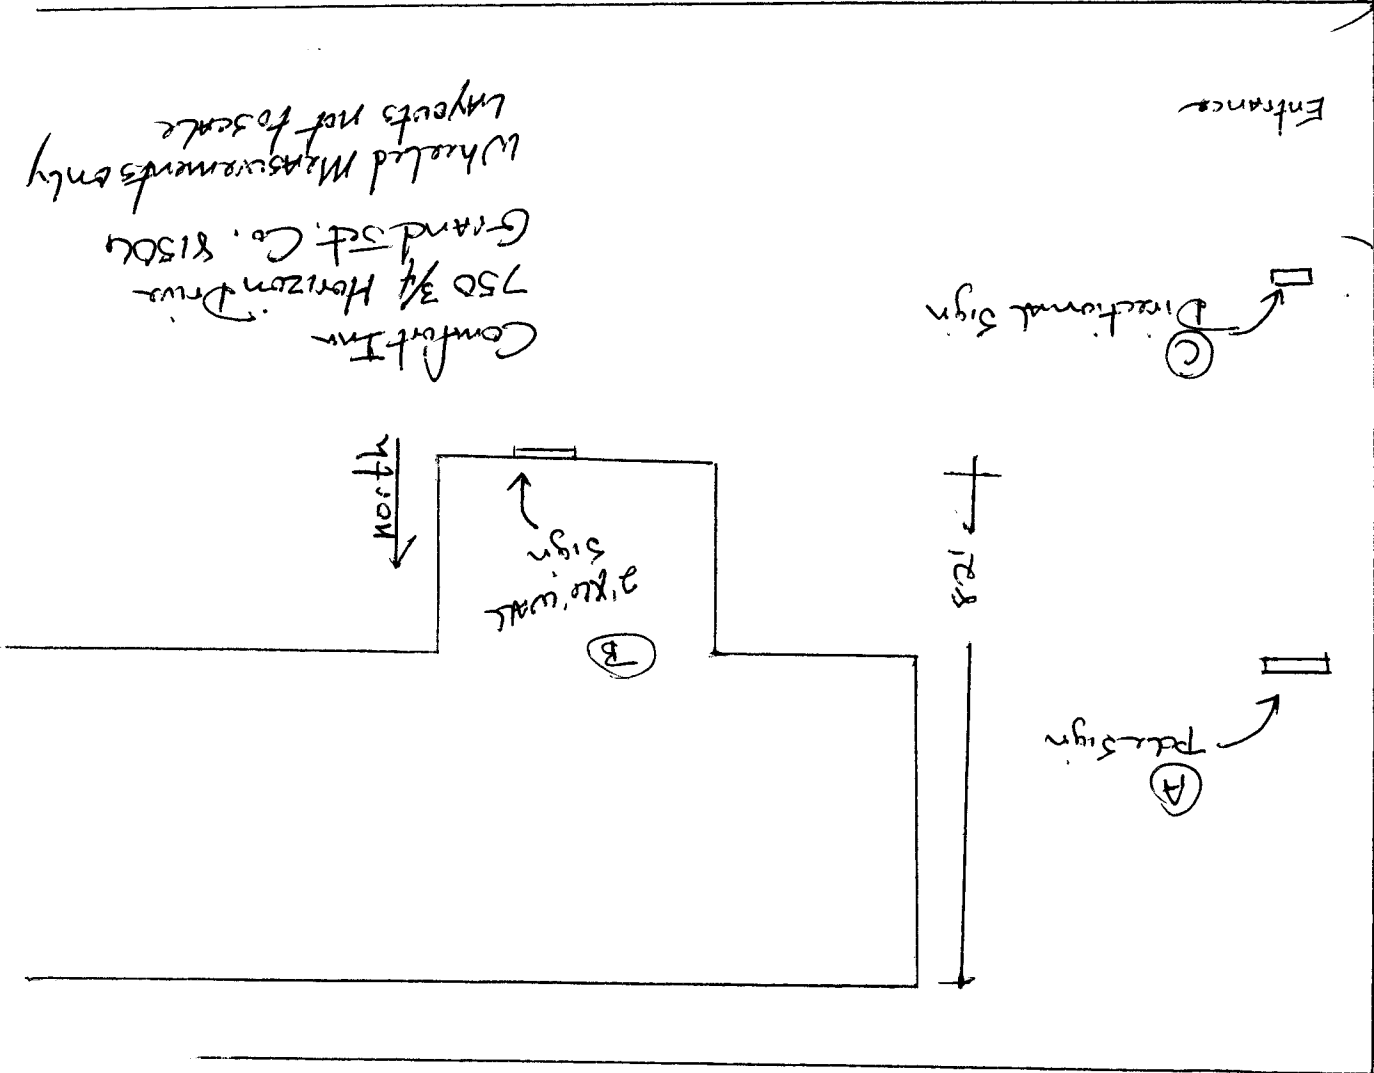 A
Pole Sign
B
WALL
Sign
82'
North
C
Directional Sign
Comfort Inn
750 3/4 Horizon Drive
Grand Jct. Co. 81506
Wheeled Measurements only
Layouts not to scale
Entrance